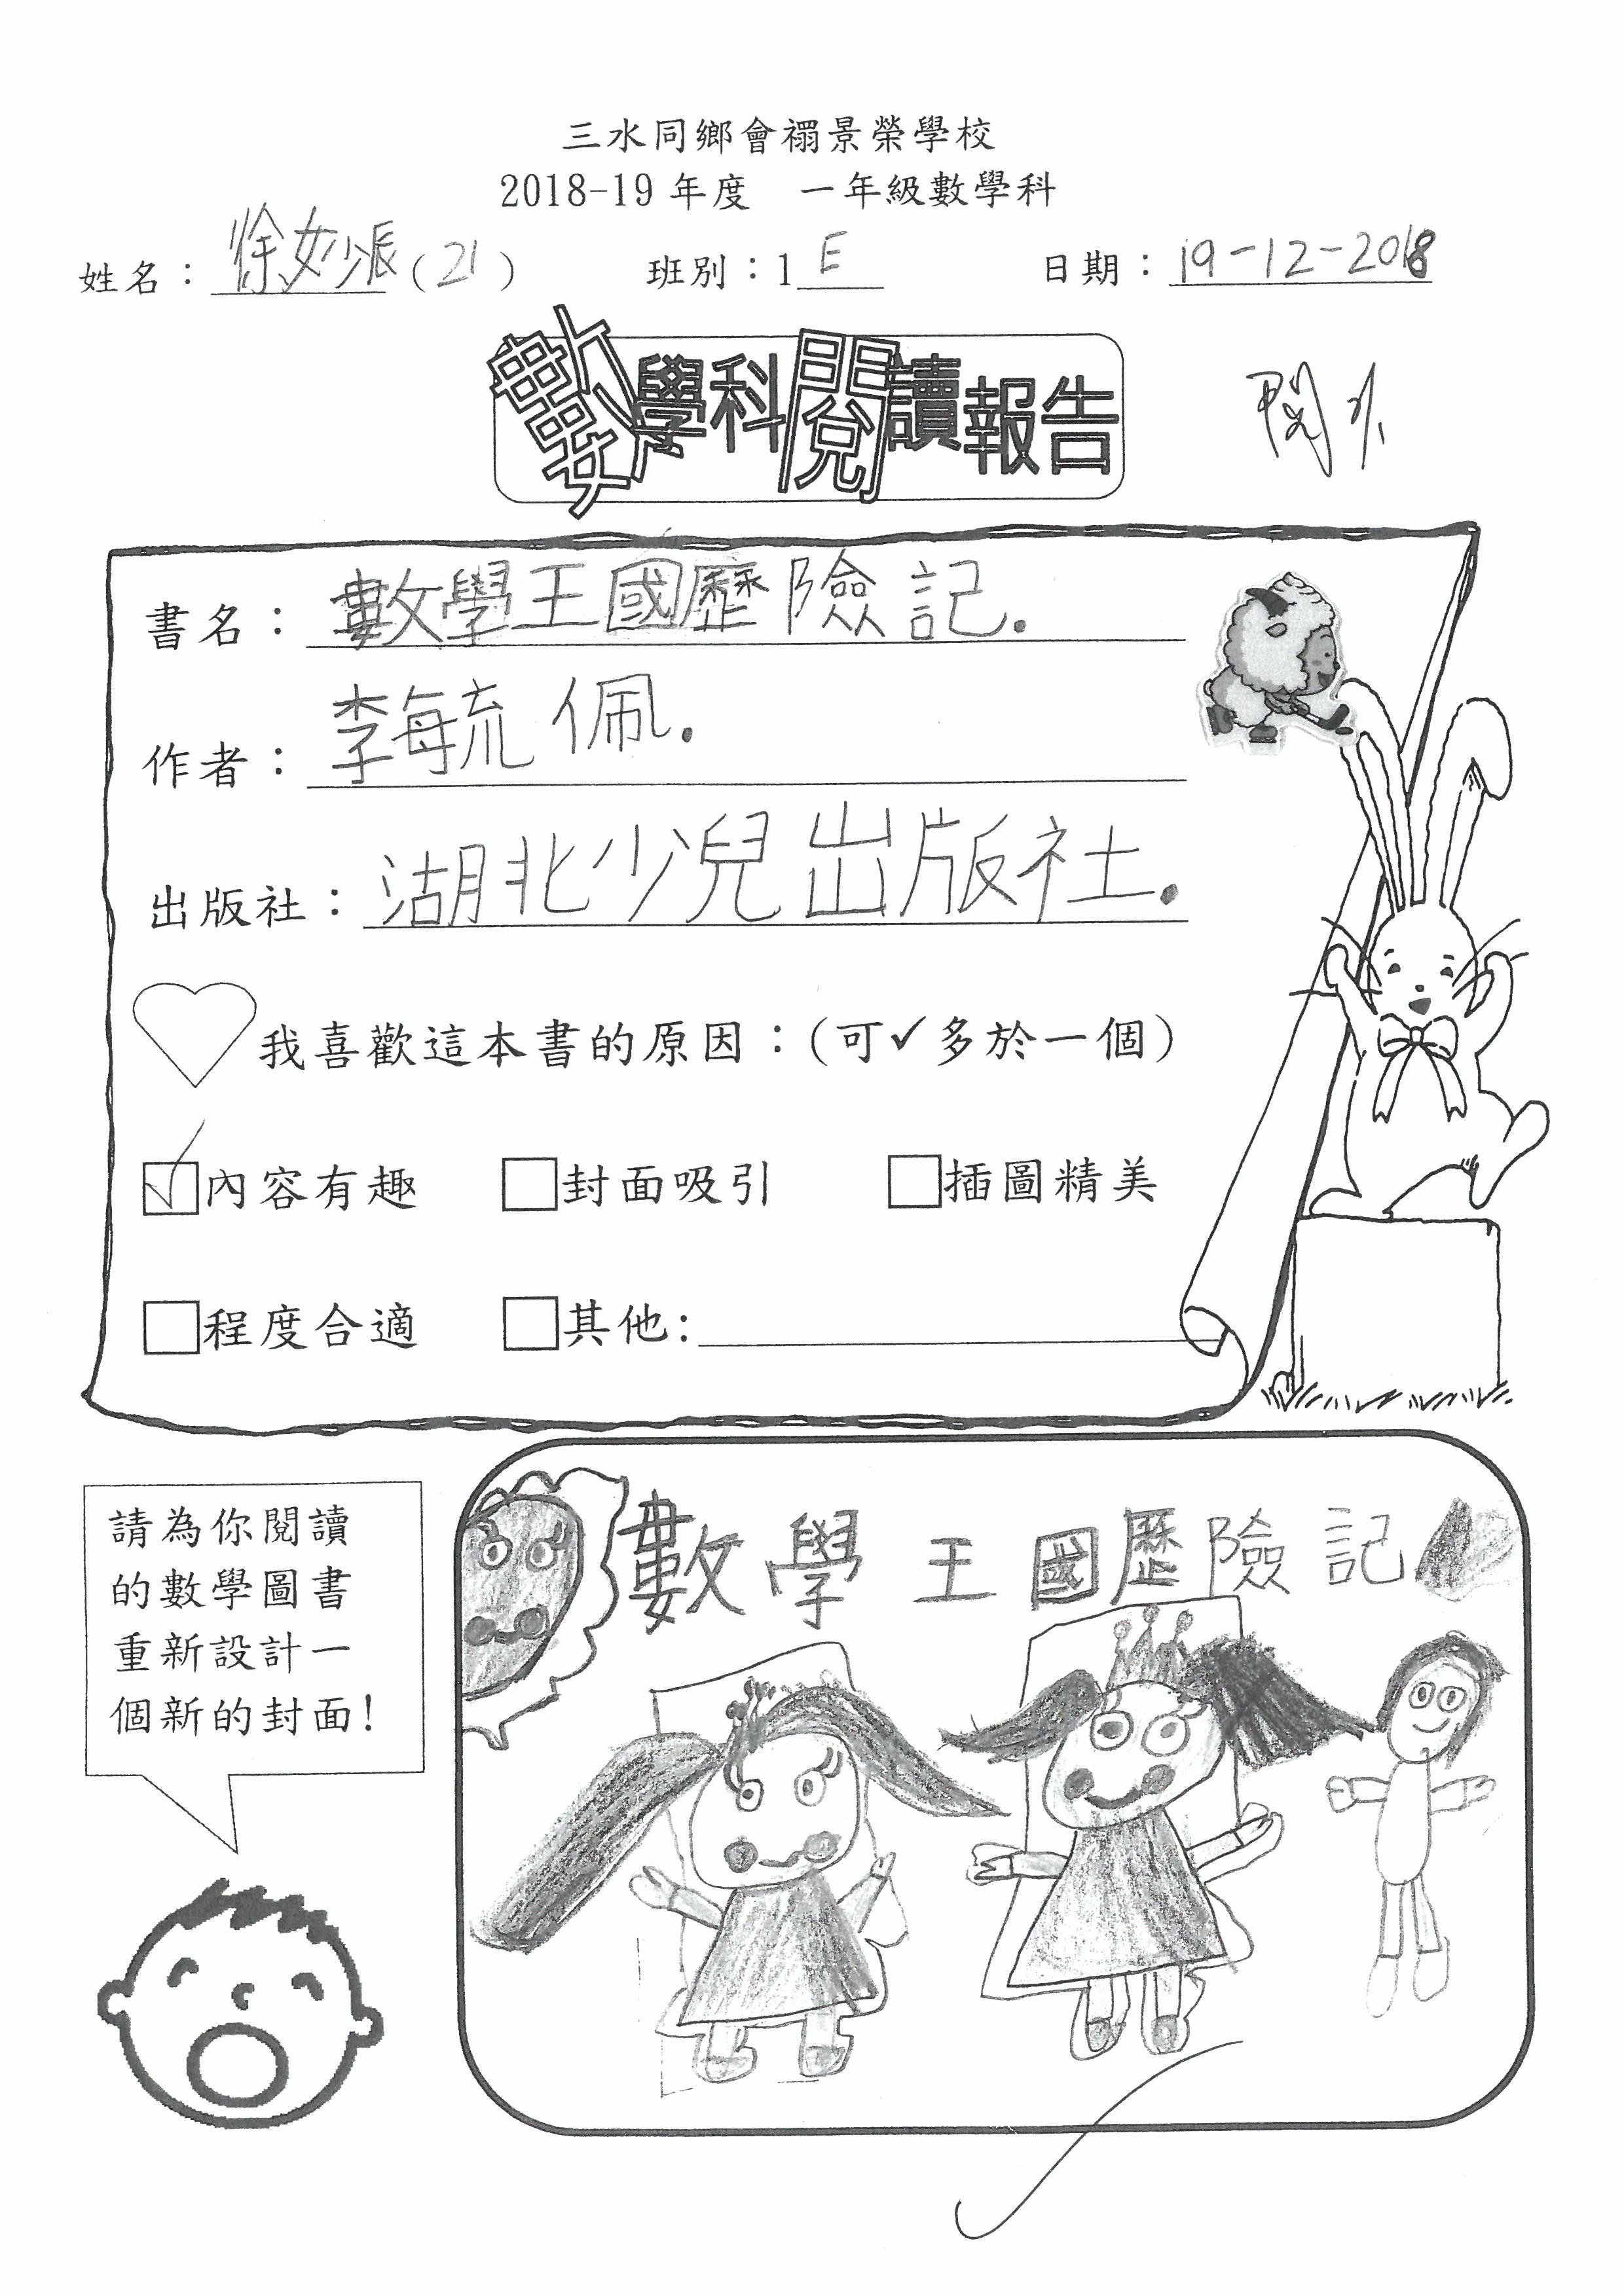 三水同鄉會禤景榮學校
2018-19 年度 一年級數學科
姓名：徐妙 (21) 班別：1 E 日期：19-12-2018
數學科閱讀報告
書名：數學王國歷險記.
作者：李毓佩.
出版社：湖北少兒出版社.
我喜歡這本書的原因：(可✓多於一個)
☑內容有趣 □封面吸引 □插圖精美
□程度合適 □其他:
請為你閱讀
的數學圖書
重新設計一
個新的封面!
數學王國歷險記